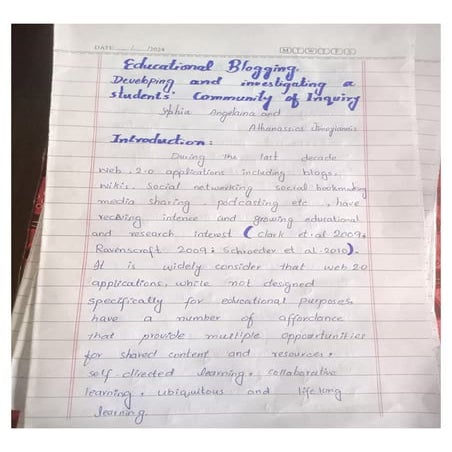 DATE __/__/2024 M T W T F S
Educational Blogging.
Developing and investigating a
students' Community of Inquiry
Sophia Angelaina and
Athanassios Jimogiannis
Introduction:
During the last decade
web .2.0 applications including blogs,
wikis. Social networking social bookmaking
media sharing. podcasting etc, have
receiving intence and growing educational
and research interest (clark et al 2009;
Ravenscraft 2009; Schroeder et al 2010).
It is widely consider that web 2.0
applications, while not designed
specifically for educational purposes
have a number of affordance
that provide multiple opportunities
for shared content and resources,
self directed learning, collaborative
learning, ubiquitous and lifelong
learning